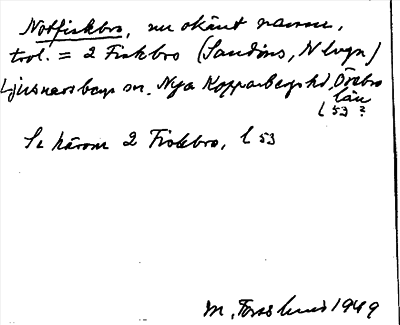 Notfiskbro, nu okänt namn,
trol. = 2 Fiskbro (Sandsns, N lvgn)
Ljusnarsbergs sn. Nya Kopparbergs hd, Örebro
län
l 53 ?
Se härom 2 Fiskbro, l 53
M. Forslund 1949